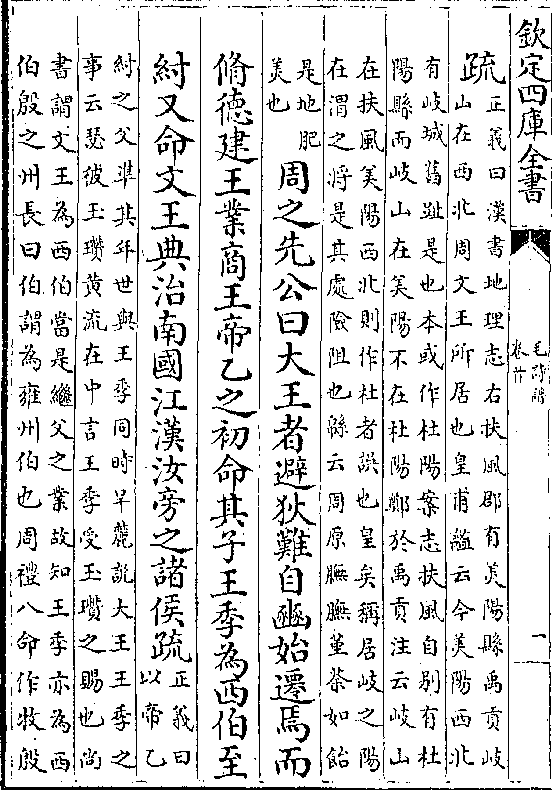 欽定四庫全書
毛詩譜
卷首
一
疏
正義曰漢書地理志右扶風郡有美陽縣禹貢岐
山在西北周文王所居也皇甫謐云今美陽西北
有岐城舊趾是也本或作杜陽案志扶風自别有杜
陽縣而岐山在美陽不在杜陽鄭於禹貢注云岐山
在扶風美陽西北則作杜者誤也皇矣稱居岐之陽
在渭之將是其處險阻也緜云周原膴膴菫荼如飴
是地肥
美也
周之先公曰大王者避狄難自豳始遷焉而
脩德建王業商王帝乙之初命其子王季為西伯至
紂又命文王典治南國江漢汝旁之諸侯疏
正義曰
以帝乙
紂之父準其年世與王季同時旱麓說大王王季之
事云瑟彼玉瓚黄流在中言王季受玉瓚之賜也尚
書謂文王為西伯當是繼父之業故知王季亦為西
伯殷之州長曰伯謂為雍州伯也周禮八命作牧殷